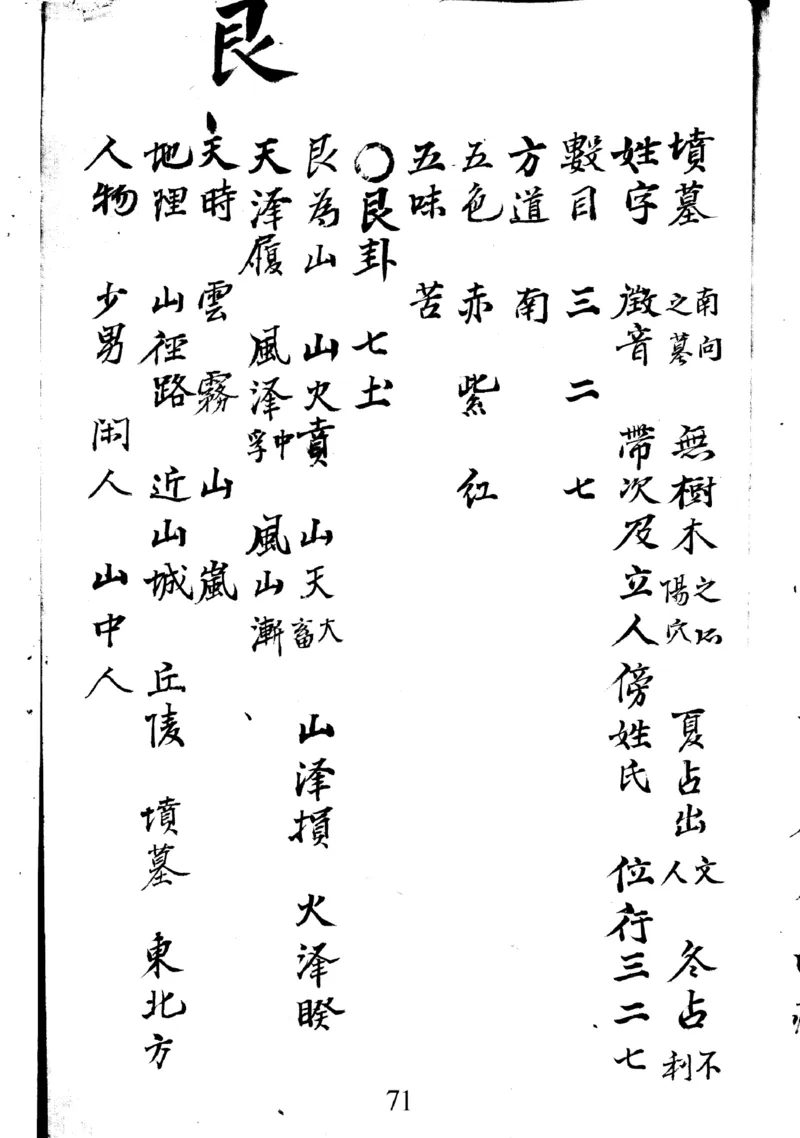 艮
墳墓 南向之墓 無樹木之所陽穴 夏占出文人 冬占不利
姓字 徵音 帶次及立人傍姓氏 位行三二七
數目 三 二 七
方道 南
五色 赤 紫 紅
五味 苦
〇艮卦 七 土
艮為山 山火賁 山天大畜 山泽損 火泽睽
天泽履 風泽中孚 風山漸
天時 雲 霧 山嵐
地理 山徑路 近山城 丘陵 墳墓 東北方
人物 少男 閑人 山中人
71